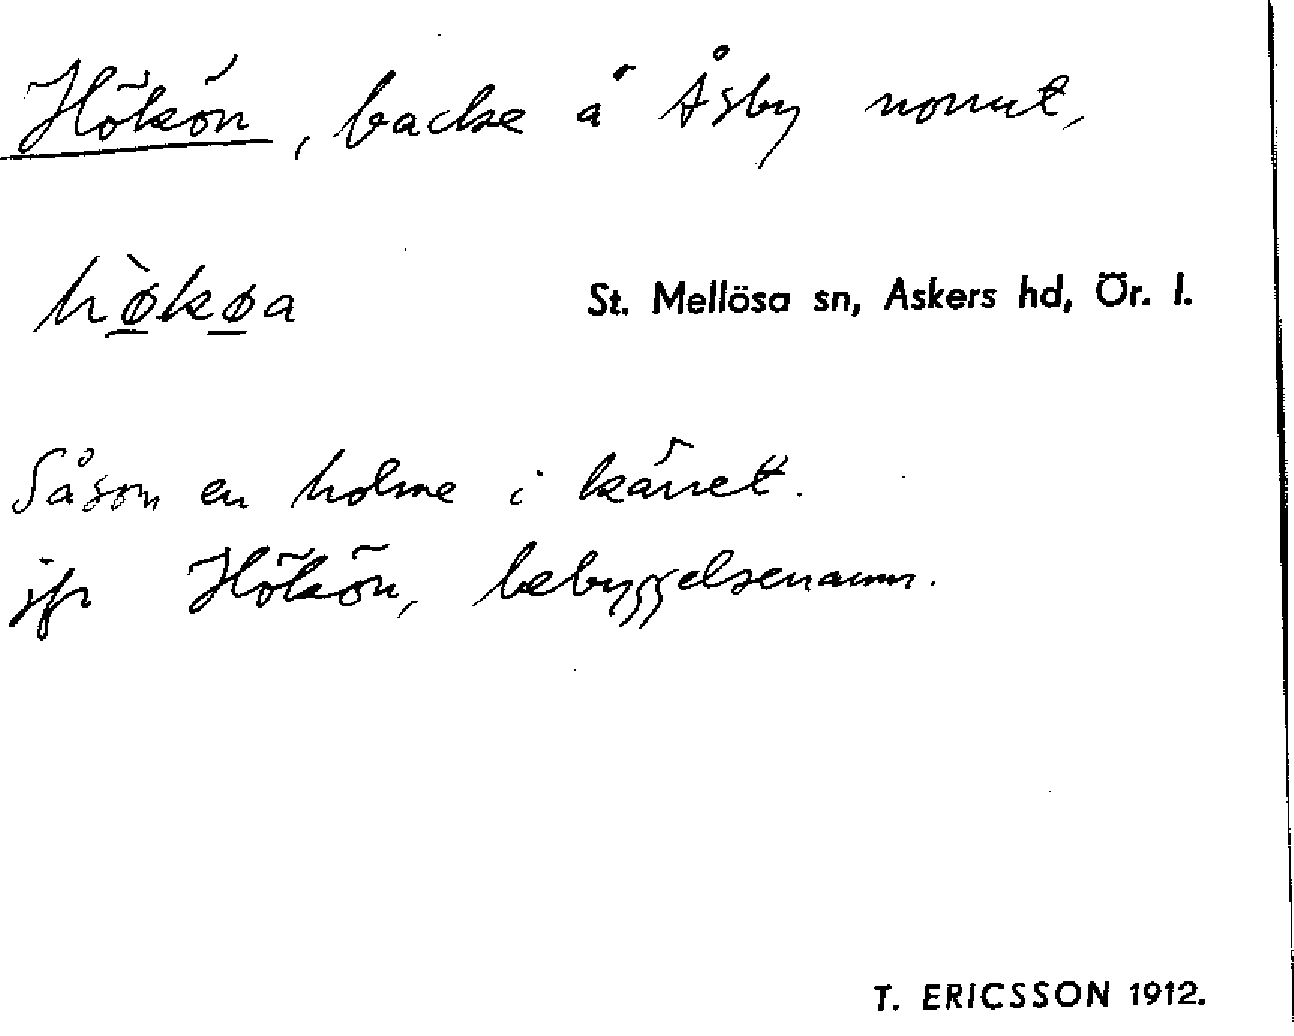 Hökön, backe å Åsby norrut,
hø̀køa
St. Mellösa sn, Askers hd, Ör. l.
Såsom en holme i kärret.
jfr Hökön, bebyggelsenamn.
T. ERICSSON 1912.